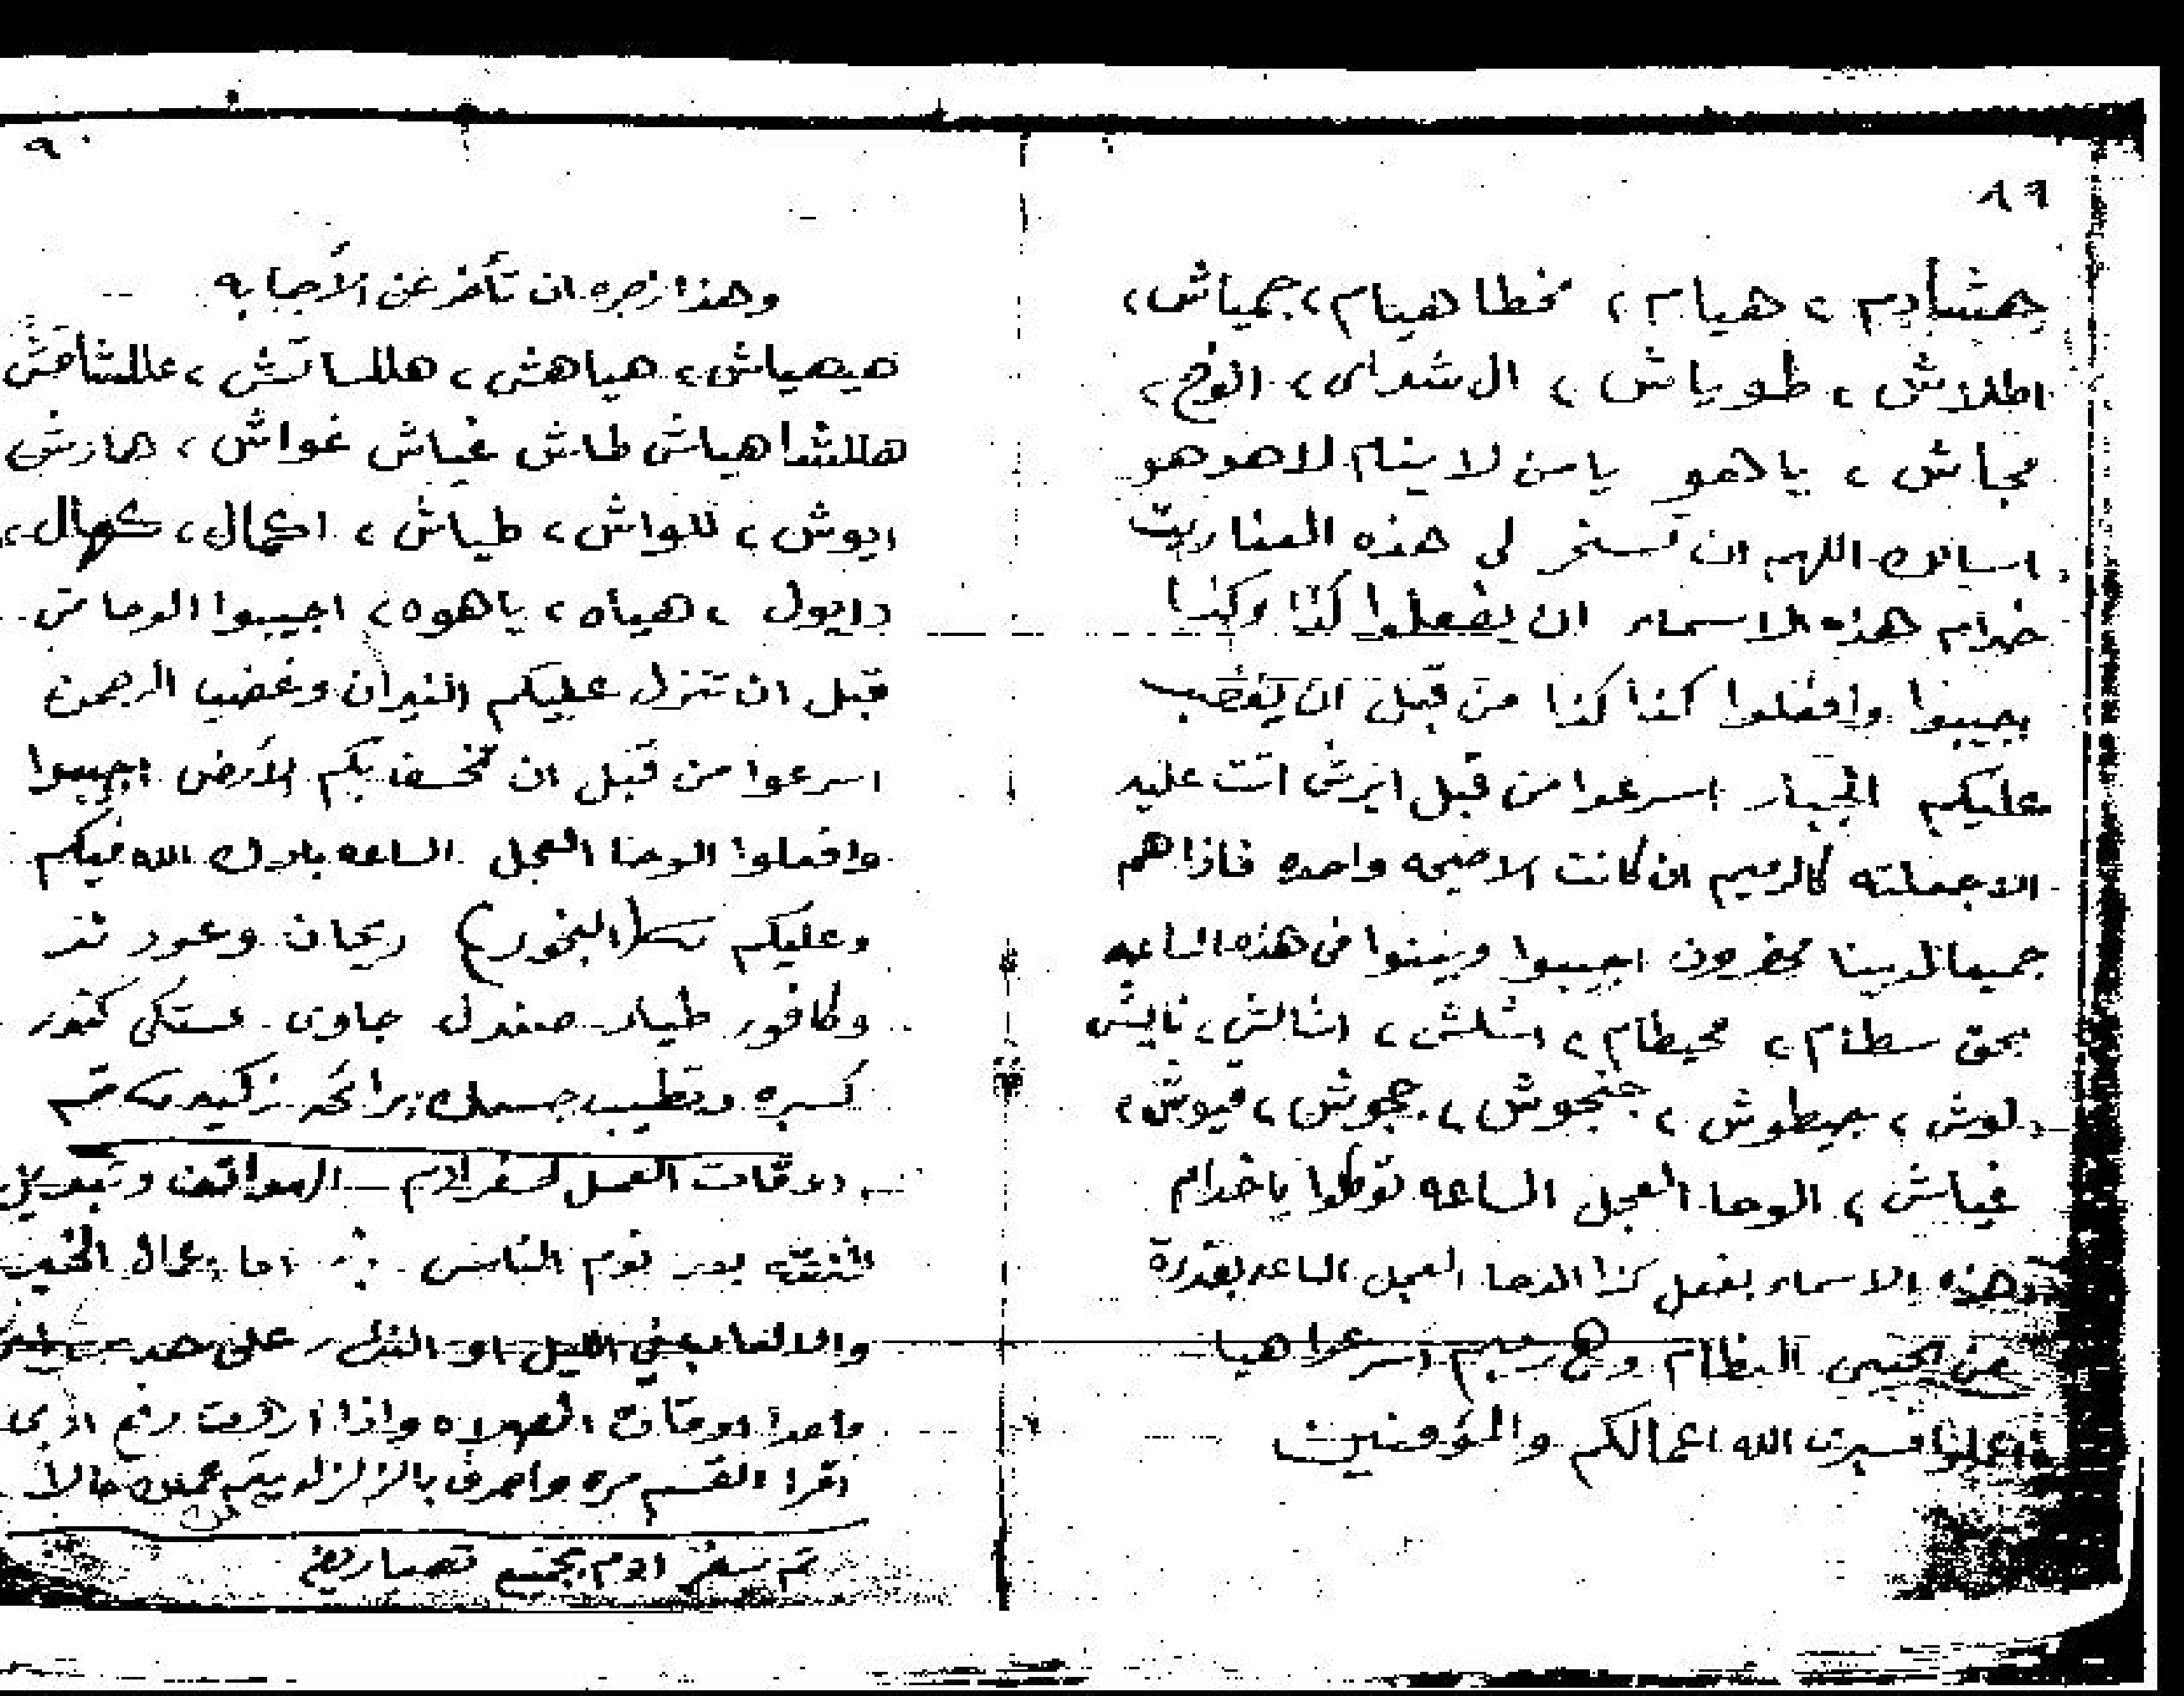 ٨٩
هشادم ، هيام ، مخطا هيام ، جمياش ،
اطلاش ، طوياش ، ال شداى ، الوخ ،
مجاش ، ياهو يامن لا ينام الاهو هو
اسالك اللهم ان تسخر لى هذه
خدام هذه الاسماء ان يفعلوا كذا وكذا
يجيبوا وافعلوا كذا كذا من قبل ان يغضب
عليكم الجبار اسرعوا من قبل اتت عليه
الا جعلته كالرميم ان كانت الا صيحه واحده فاذا هم
جميعا لدينا محضرون اجيبوا فى هذه الساعه
بحق سطام ، محيطام ، اشلش ، ،
دلوش ، بهيطوش ، جنجوش ، ججوش ، فيوش ،
غياش ، الوحا العجل الساعه توكلوا ياخدام
هذه الاسماء بفعل كذا الوحا العجل الساعه بقدرة
من يحيى العظام وهى رميم اسرعوا هيا
فسيرى الله اعمالكم والمؤمنين
٩٠
وهذا زجره ان تأخر عن الأجابه
هيهياش ، هياهش ،
هللشا هياش طاش غياش غواش ، هازش
ايوش ، للواش ، طياش ، اكمال ، كهال ،
دايول ، هياه ، ياهوه ، اجيبوا
قبل ان تنزل عليكم النيران وغضب الرحمن
اسرعوا من قبل ان تخسف بكم الأرض اجيبوا
وافعلوا الوحا العجل الساعه بارك الله فيكم
وعليكم (البخور) ريحان وعود ند
وكافور طيار صندل جاوى مستكى كندر
كسبره وتطيب جسمك برائحه زكيه تم
اوقات العمل
بعد نوم الناس اما اعمال الخير
فى الليل او النهار على حد
ماعدا اوقات الصلاه واذا اردت
اقرا القسم مره واصرف بالزلزله يتم عملك حالا
تم سفر ادم بجميع تصاريفه